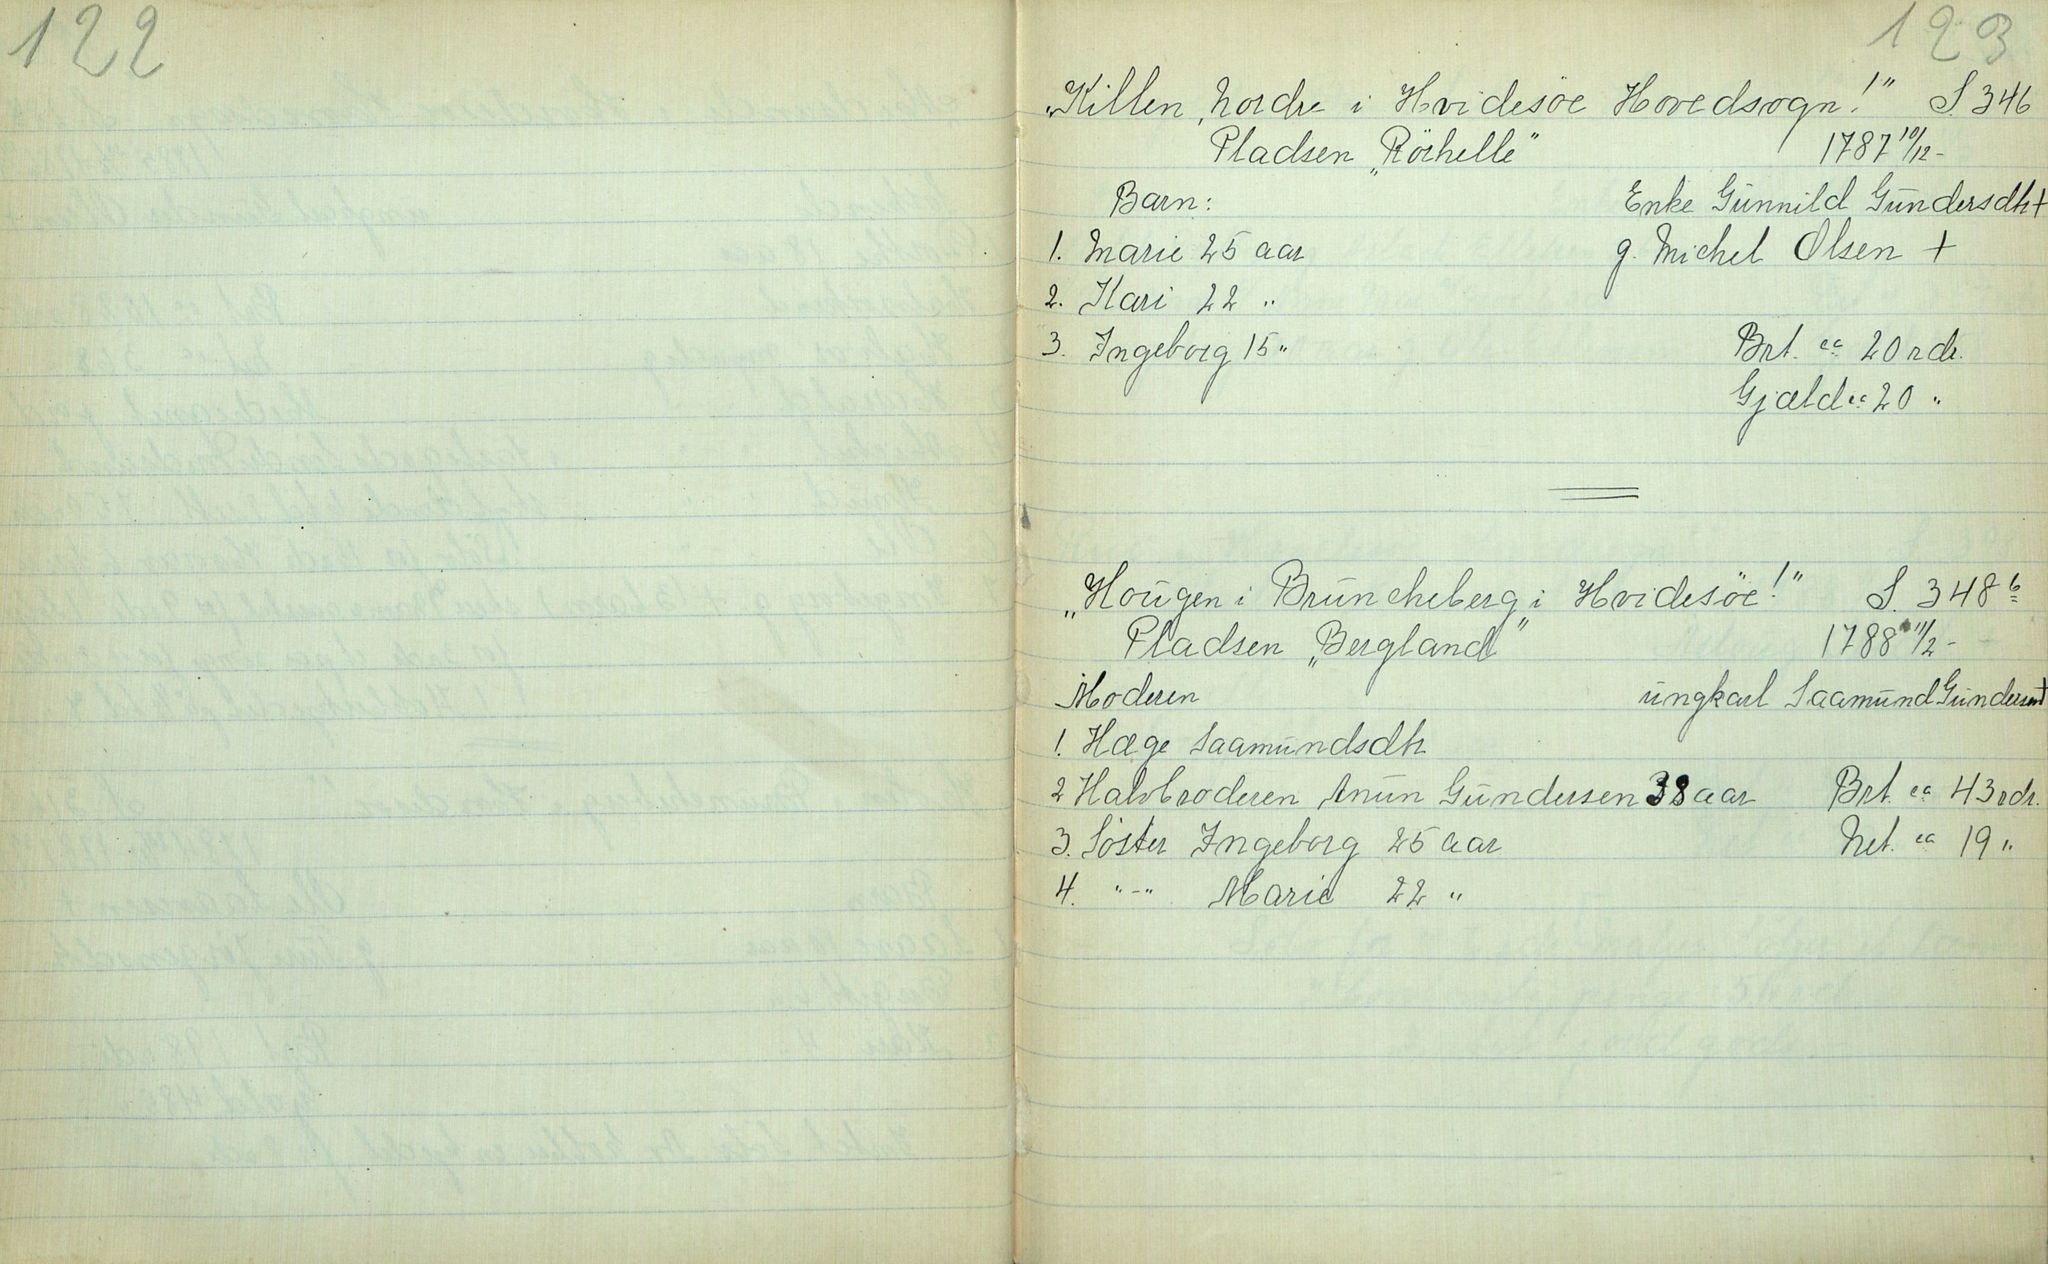 122
123
"Killen, Nordre i Hvidesöe Hovedsogn!" S. 346
Pladsen "Röihelle" 1787 10/12-
Barn: Enke Gunnild Gundersdtr +
1. Marie 25 aar g. Michel Olsen +
2. Kari 22 "
3. Ingeborg 15 " Brt. ca 20 rdr.
Gjæld ca 20 "
"Hougen i Bruncheberg i Hvidesöe!" S. 348 b
Pladsen "Bergland" 1788 11/2-
Moderen ungkarl Saamund Gundersen +
1. Hæge Saamundsdtr
2 Halvbroderen Anun Gundersen 38 aar Brt. ca 43 rdr.
3. Söster Ingeborg 25 aar Net. ca 19 "
4. "-" Marie 22 "